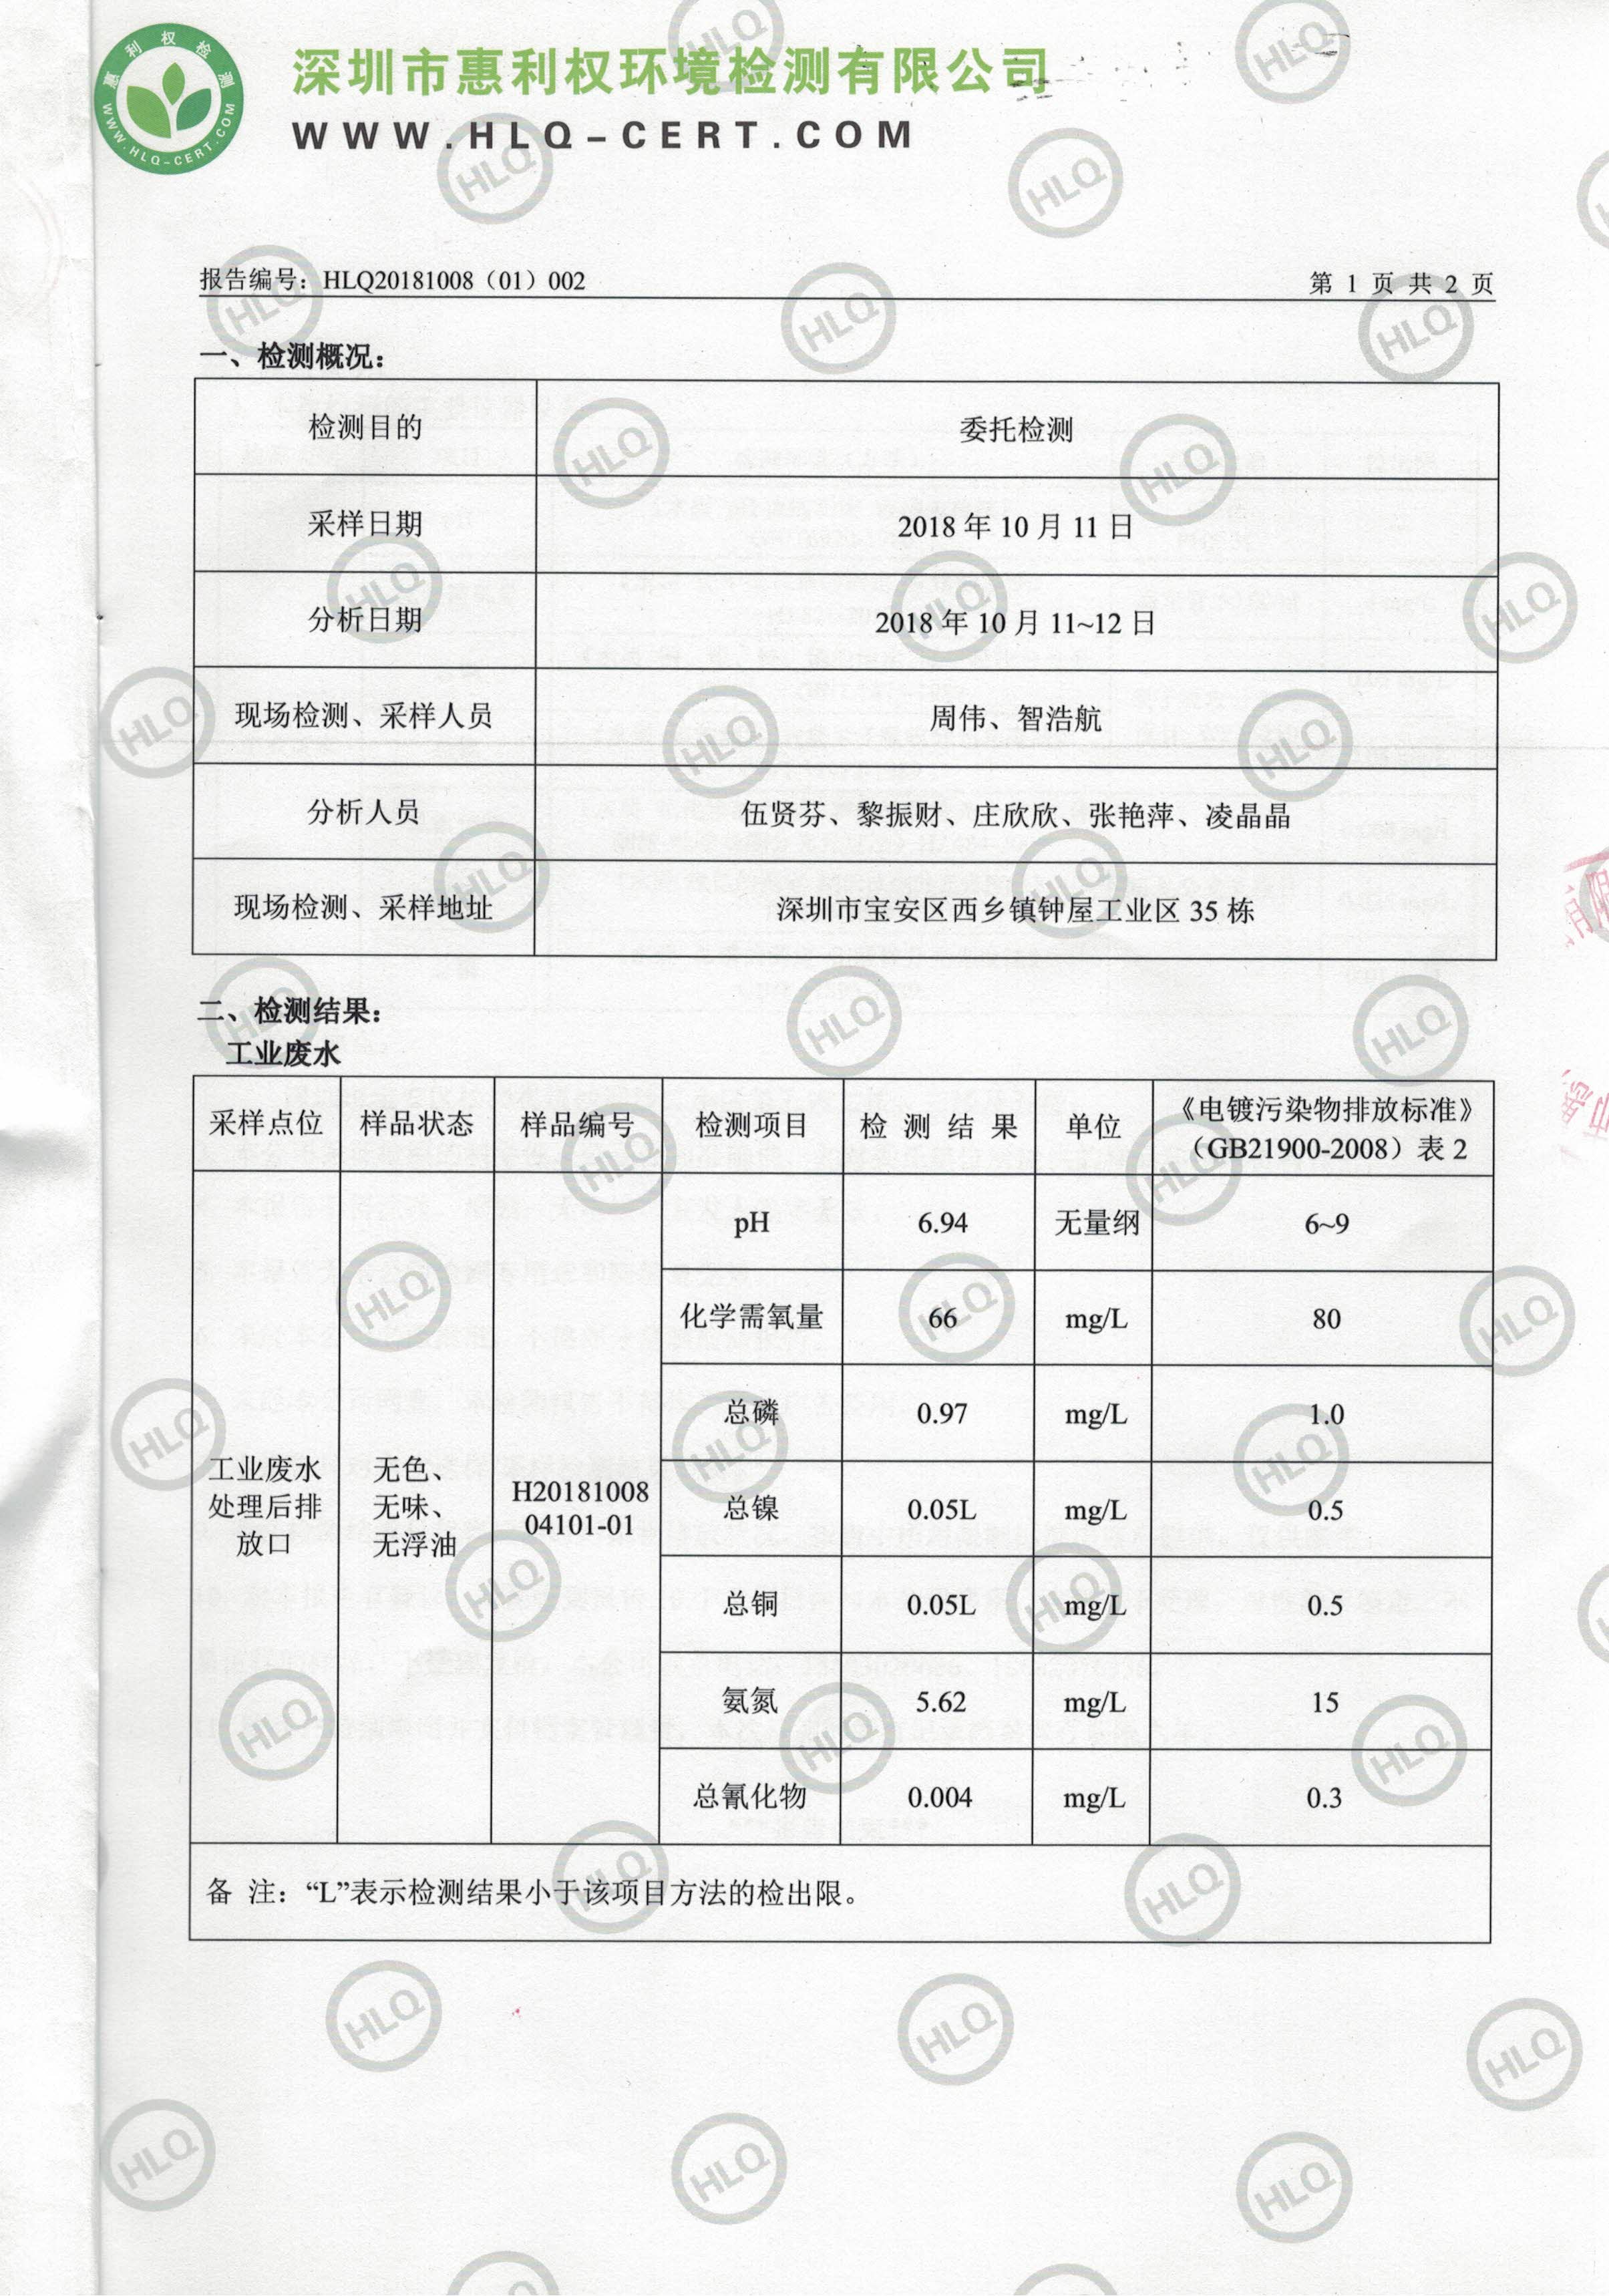 惠利权检测
WWW.HLQ-CERT.COM
深圳市惠利权环境检测有限公司
WWW.HLQ-CERT.COM
报告编号：HLQ20181008（01）002
第 1 页 共 2 页
一、检测概况：
检测目的 委托检测
采样日期 2018 年 10 月 11 日
分析日期 2018 年 10 月 11~12 日
现场检测、采样人员 周伟、智浩航
分析人员 伍贤芬、黎振财、庄欣欣、张艳萍、凌晶晶
现场检测、采样地址 深圳市宝安区西乡镇钟屋工业区 35 栋
二、检测结果：
工业废水
采样点位 样品状态 样品编号 检测项目 检 测 结 果 单位 《电镀污染物排放标准》
（GB21900-2008）表 2
工业废水
处理后排
放口
无色、
无味、
无浮油
H20181008
04101-01
pH 6.94 无量纲 6~9
化学需氧量 66 mg/L 80
总磷 0.97 mg/L 1.0
总镍 0.05L mg/L 0.5
总铜 0.05L mg/L 0.5
氨氮 5.62 mg/L 15
总氰化物 0.004 mg/L 0.3
备 注：“L”表示检测结果小于该项目方法的检出限。
HLQ